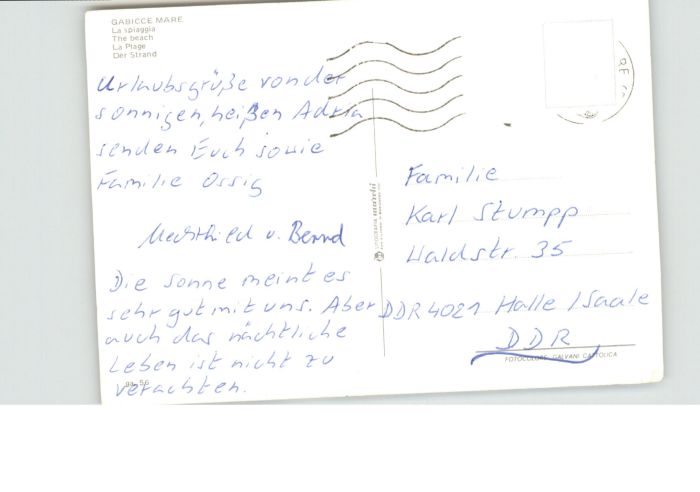 GABICCE MARE
La spiaggia
The beach
La Plage
Der Strand
Urlaubsgrüße von der
sonnigen, heißen Adria
senden Euch sowie
Familie Ossig
Mechthild u. Bernd
Die Sonne meint es
sehr gut mit uns. Aber
auch das nächtliche
Leben ist nicht zu
verachten.
Familie
Karl Stumpp
Waldstr. 35
DDR 4021 Halle / Saale
DDR
FOTOCOLORE GALVANI CATTOLICA